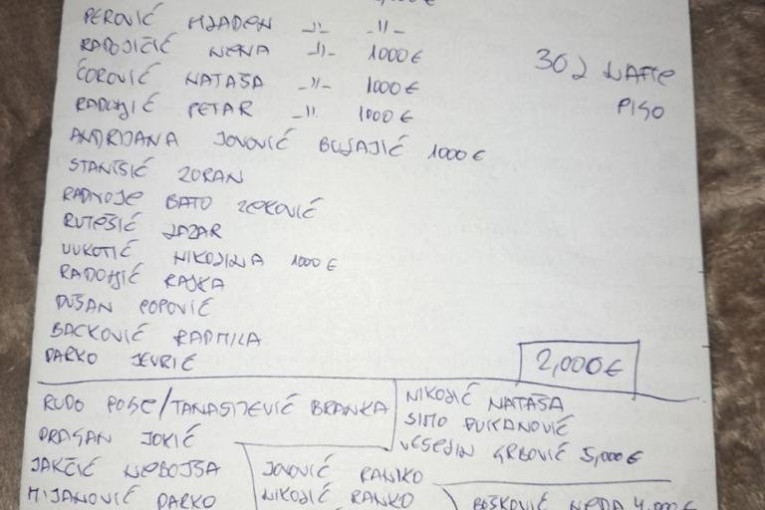 PEROVIĆ MLADEN -11- -11-
RADOJIČIĆ NENA -11- 1000 €
ĆOROVIĆ NATAŠA -11- 1000 €
RADONJIĆ PETAR -11- 1000 €
ANDRIJANA JOVOVIĆ BULAJIĆ 1000 €
STANIŠIĆ ZORAN
RADIVOJE BATO ZEKOVIĆ
RUTEŠIĆ LAZAR
VUKOTIĆ NIKOLINA 1000 €
RADONJIĆ RAJKA
DUŠAN POPOVIĆ
BACKOVIĆ RADMILA
DARKO JEVRIĆ
PISO
2,000 €
RUDO POSE/TANASIJEVIĆ BRANKA
DRAGAN JOKIĆ
JAKČIĆ NEBOJŠA
MIJANOVIĆ DARKO
NIKOLIĆ NATAŠA
SIMO VUKANOVIĆ
VESELIN GRBOVIĆ 5,000 €
JOVOVIĆ RANKO
NIKOLIĆ RANKO
BOŠKOVIĆ NEDA 4,000 €